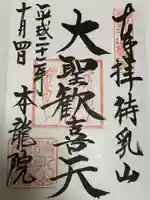 奉拝 待乳山
大聖歓喜天
平成二十二年
十月四日
本龍院